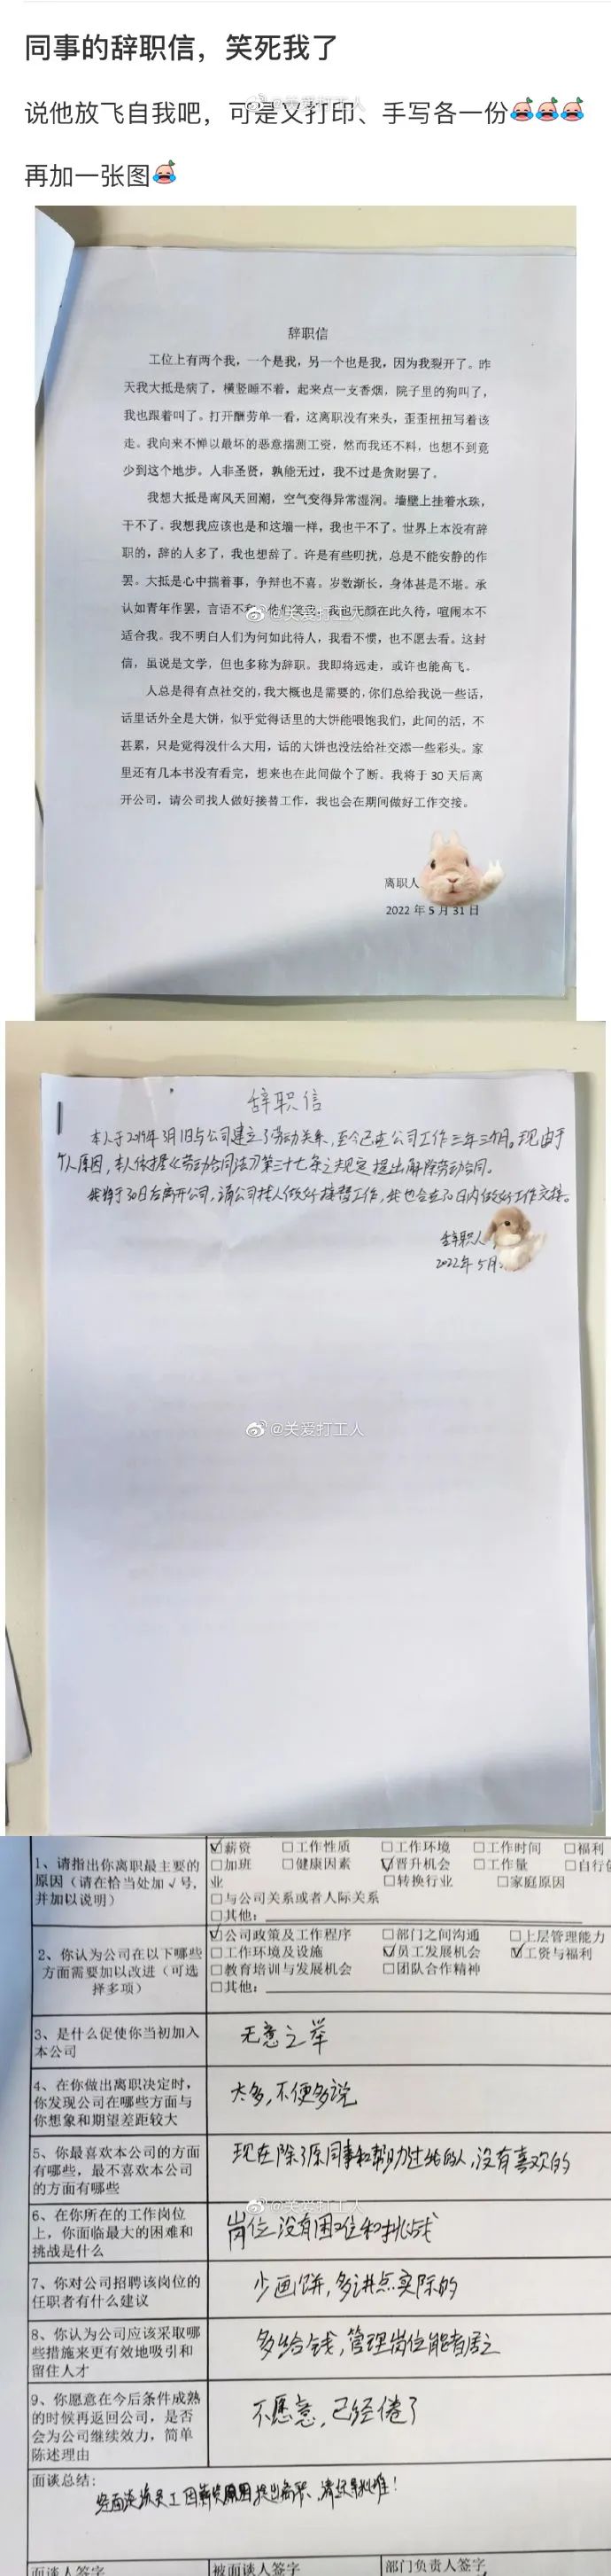 同事的辞职信，笑死我了
@关爱打工人
说他放飞自我吧，可是又打印、手写各一份
再加一张图
辞职信
工位上有两个我，一个是我，另一个也是我，因为我裂开了。昨
天我大抵是病了，横竖睡不着，起来点一支香烟，院子里的狗叫了，
我也跟着叫了。打开酬劳单一看，这离职没有来头，歪歪扭扭写着该
走。我向来不惮以最坏的恶意揣测工资，然而我还不料，也想不到竟
少到这个地步。人非圣贤，孰能无过，我不过是贪财罢了。
我想大抵是南风天回潮，空气变得异常湿润。墙壁上挂着水珠，
干不了。我想我应该也是和这墙一样，我也干不了。世界上本没有辞
职的，辞的人多了，我也想辞了。许是有些叨扰，总是不能安静的作
罢。大抵是心中揣着事，争辩也不喜。岁数渐长，身体甚是不堪。承
认如青年作罢，言语不利，他们笑我，我也无颜在此久待，喧闹本不
@关爱打工人
适合我。我不明白人们为何如此待人，我看不惯，也不愿去看。这封
信，虽说是文学，但也多称为辞职。我即将远走，或许也能高飞。
人总是得有点社交的，我大概也是需要的，你们总给我说一些话，
话里话外全是大饼，似乎觉得话里的大饼能喂饱我们，此间的活，不
甚累，只是觉得没什么大用，话的大饼也没法给社交添一些彩头。家
里还有几本书没有看完，想来也在此间做个了断。我将于 30 天后离
开公司，请公司找人做好接替工作，我也会在期间做好工作交接。
离职人
2022 年 5 月 31 日
辞职信
本人于2019年3月1日与公司建立了劳动关系，至今已在公司工作三年三个月。现由于
个人原因，本人依据《劳动合同法》第三十七条之规定提出解除劳动合同。
我将于30日后离开公司，请公司找人做好接替工作，我也会在30日内做好工作交接。
辞职人
2022年5月
@关爱打工人
1、请指出你离职最主要的原因（请在恰当处加√号，并加以说明）
☑薪资 □工作性质 □工作环境 □工作时间 □福利
□加班 □健康因素 ☑晋升机会 □工作量 □自行创
业 □转换行业 □家庭原因
□与公司关系或者人际关系
□其他：
2、你认为公司在以下哪些方面需要加以改进（可选择多项）
☑公司政策及工作程序 □部门之间沟通 □上层管理能力
□工作环境及设施 ☑员工发展机会 ☑工资与福利
□教育培训与发展机会 □团队合作精神
□其他：
3、是什么促使你当初加入本公司
无意之举
4、在你做出离职决定时，你发现公司在哪些方面与你想象和期望差距较大
太多，不便多说
5、你最喜欢本公司的方面有哪些，最不喜欢本公司的方面有哪些
现在除了原同事和帮助过我的人，没有喜欢的
@关爱打工人
6、在你所在的工作岗位上，你面临最大的困难和挑战是什么
岗位没有困难和挑战
7、你对公司招聘该岗位的任职者有什么建议
少画饼，多讲点实际的
8、你认为公司应该采取哪些措施来更有效地吸引和留住人才
多给钱，管理岗位能者居之
9、你愿意在今后条件成熟的时候再返回公司，是否会为公司继续效力，简单陈述理由
不愿意，已经倦了
面谈总结：
经面谈该员工因薪资原因提出离职，请领导批准！
面谈人签字 被面谈人签字 部门负责人签字